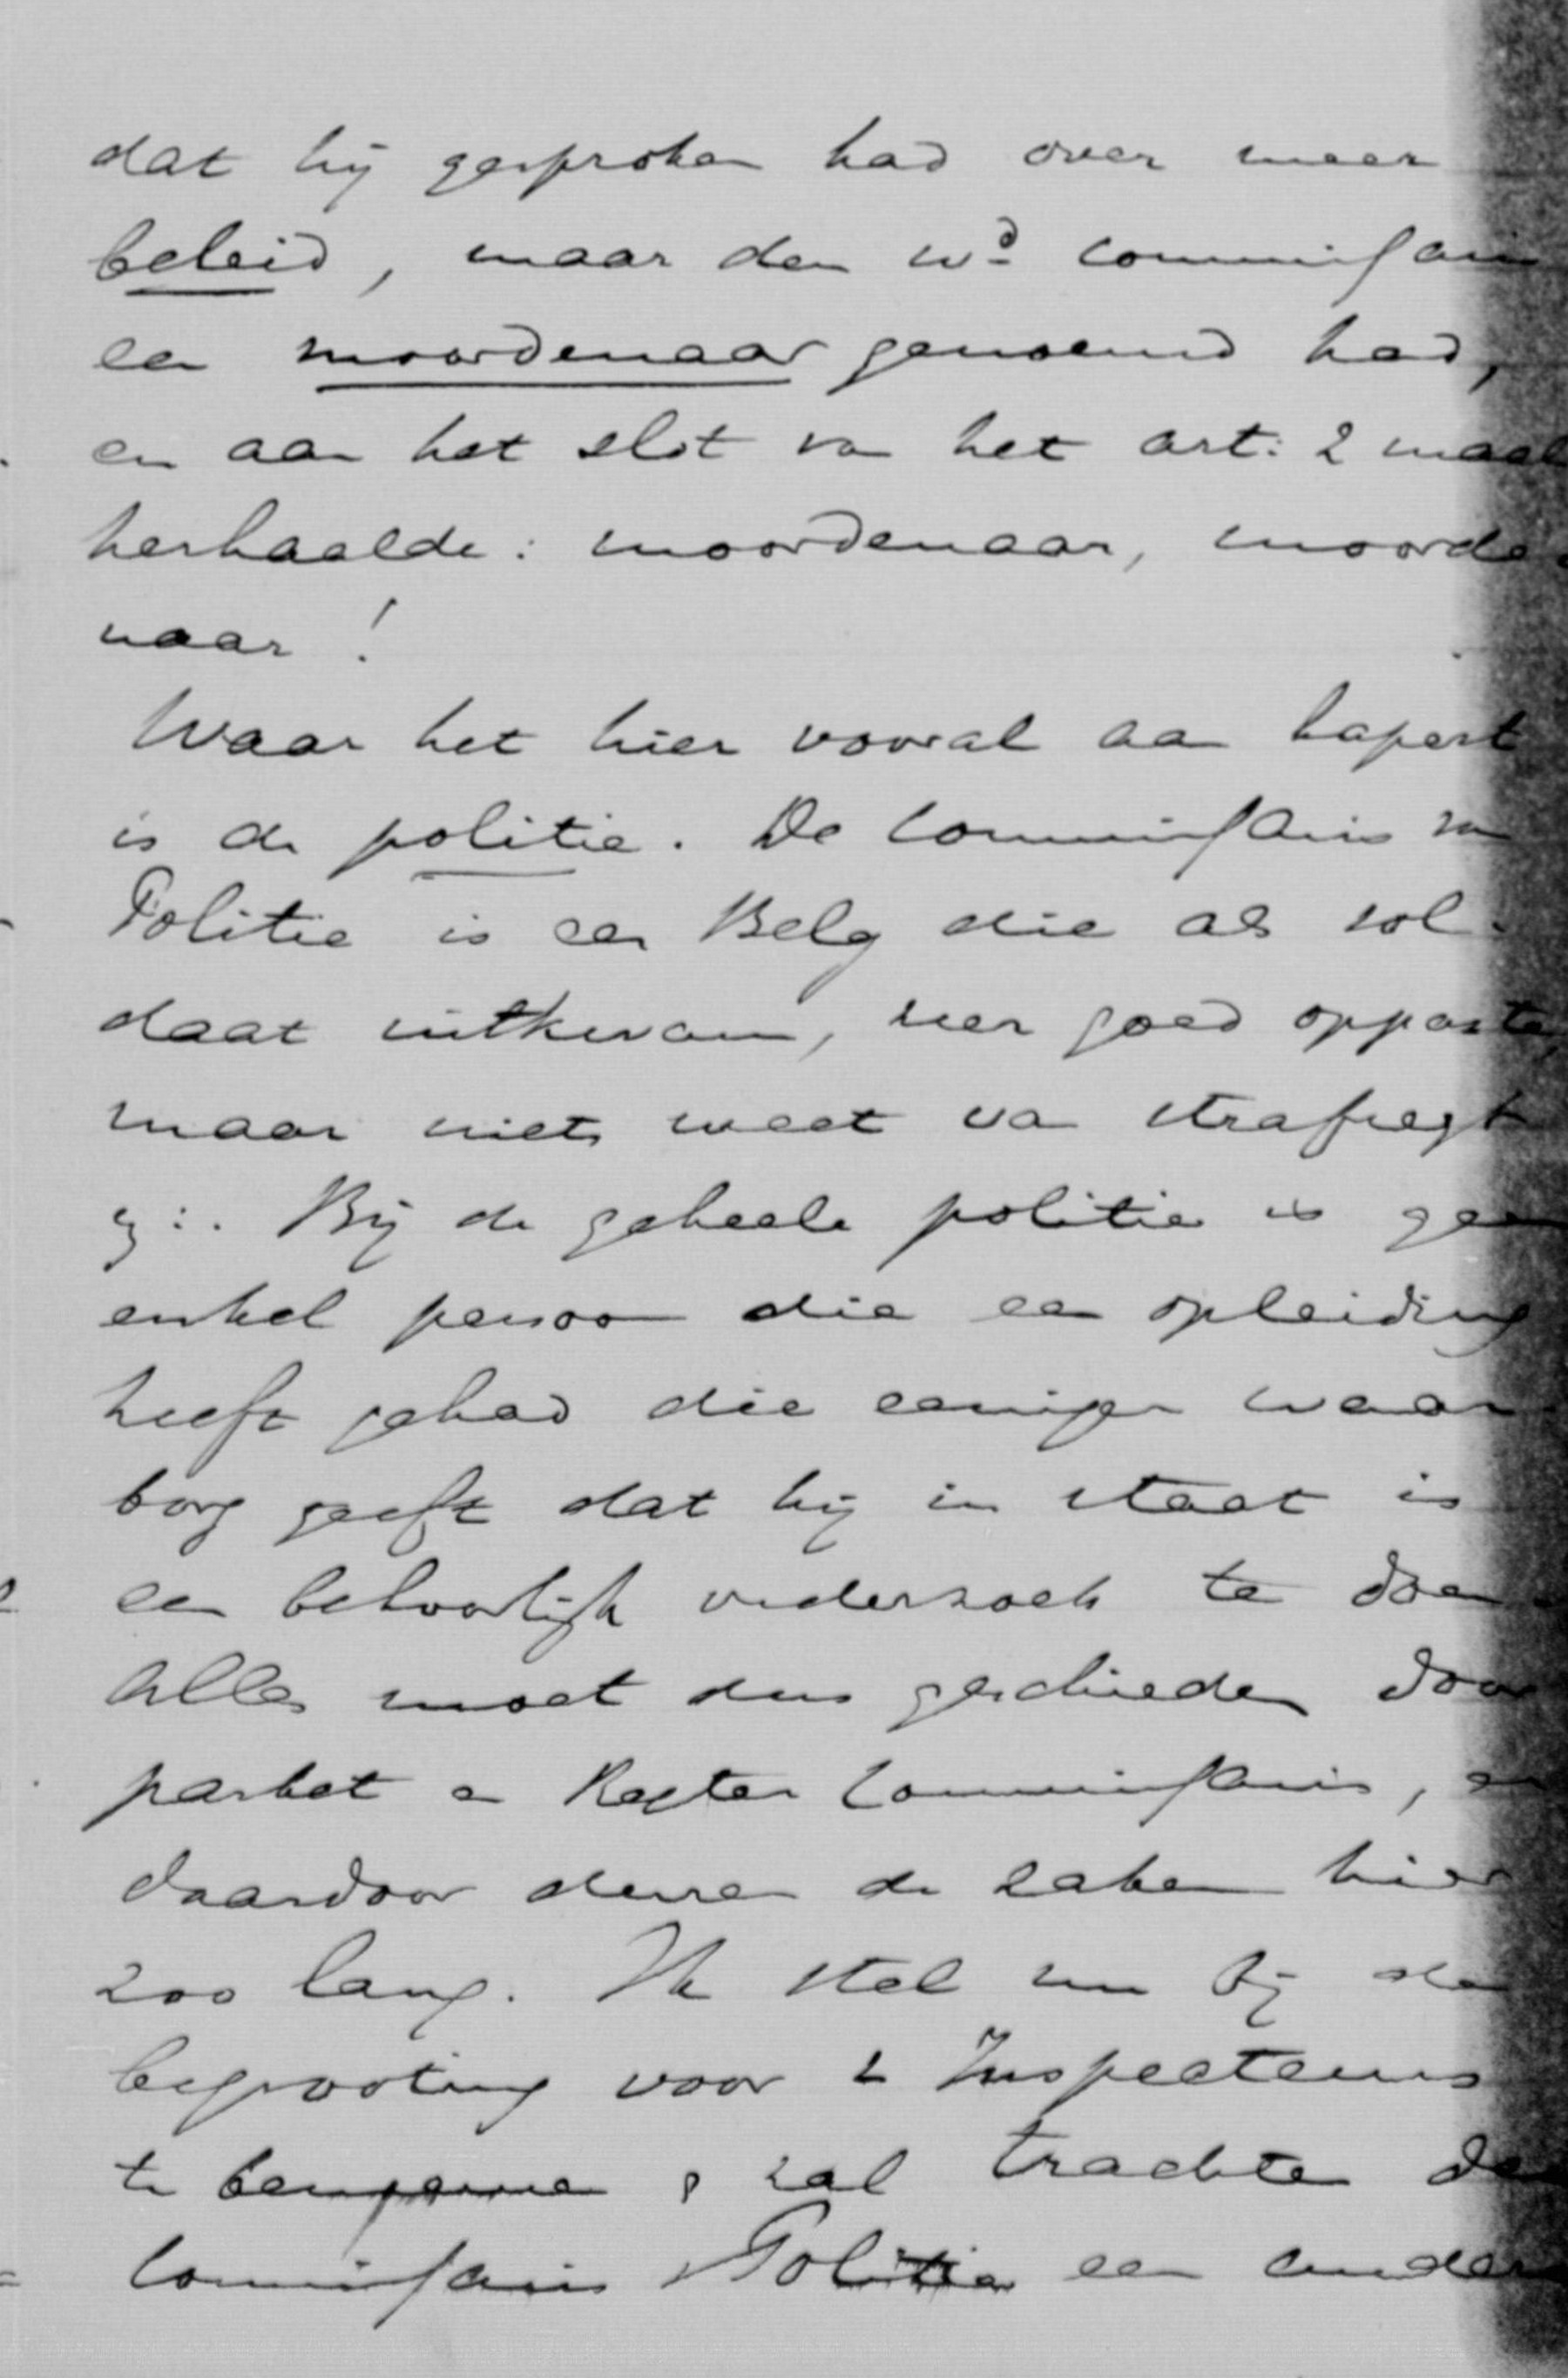 dat hij gesproken had over meer
beleid, maar den wd commissaris
een moordenaar genoemd had,
en aan het slot van het art: 2 maal
herhaalde: moordenaar, moorde-
naar!
Waar het hier vooral aan hapert
is de politie. De Commissaris van
Politie is een Belg die als sol-
daat uitkwam, zeer goed oppaste,
maar niets weet van strafregt
Bij de geheele politie is geen
enkel persoon die een opleiding
heeft gehad die eenigen waar-
borg geeft dat hij in staat is
een behoorlijk onderzoek te doen.
Alles moet dus geschieden door
parket en Regter Commissaris, en
daardoor duren de zaken hier
zoo lang. Ik stel nu bij de
begrooting voor 2 Inspecteurs
te benoemen & zal trachten den
Commissaris v Politie een ander